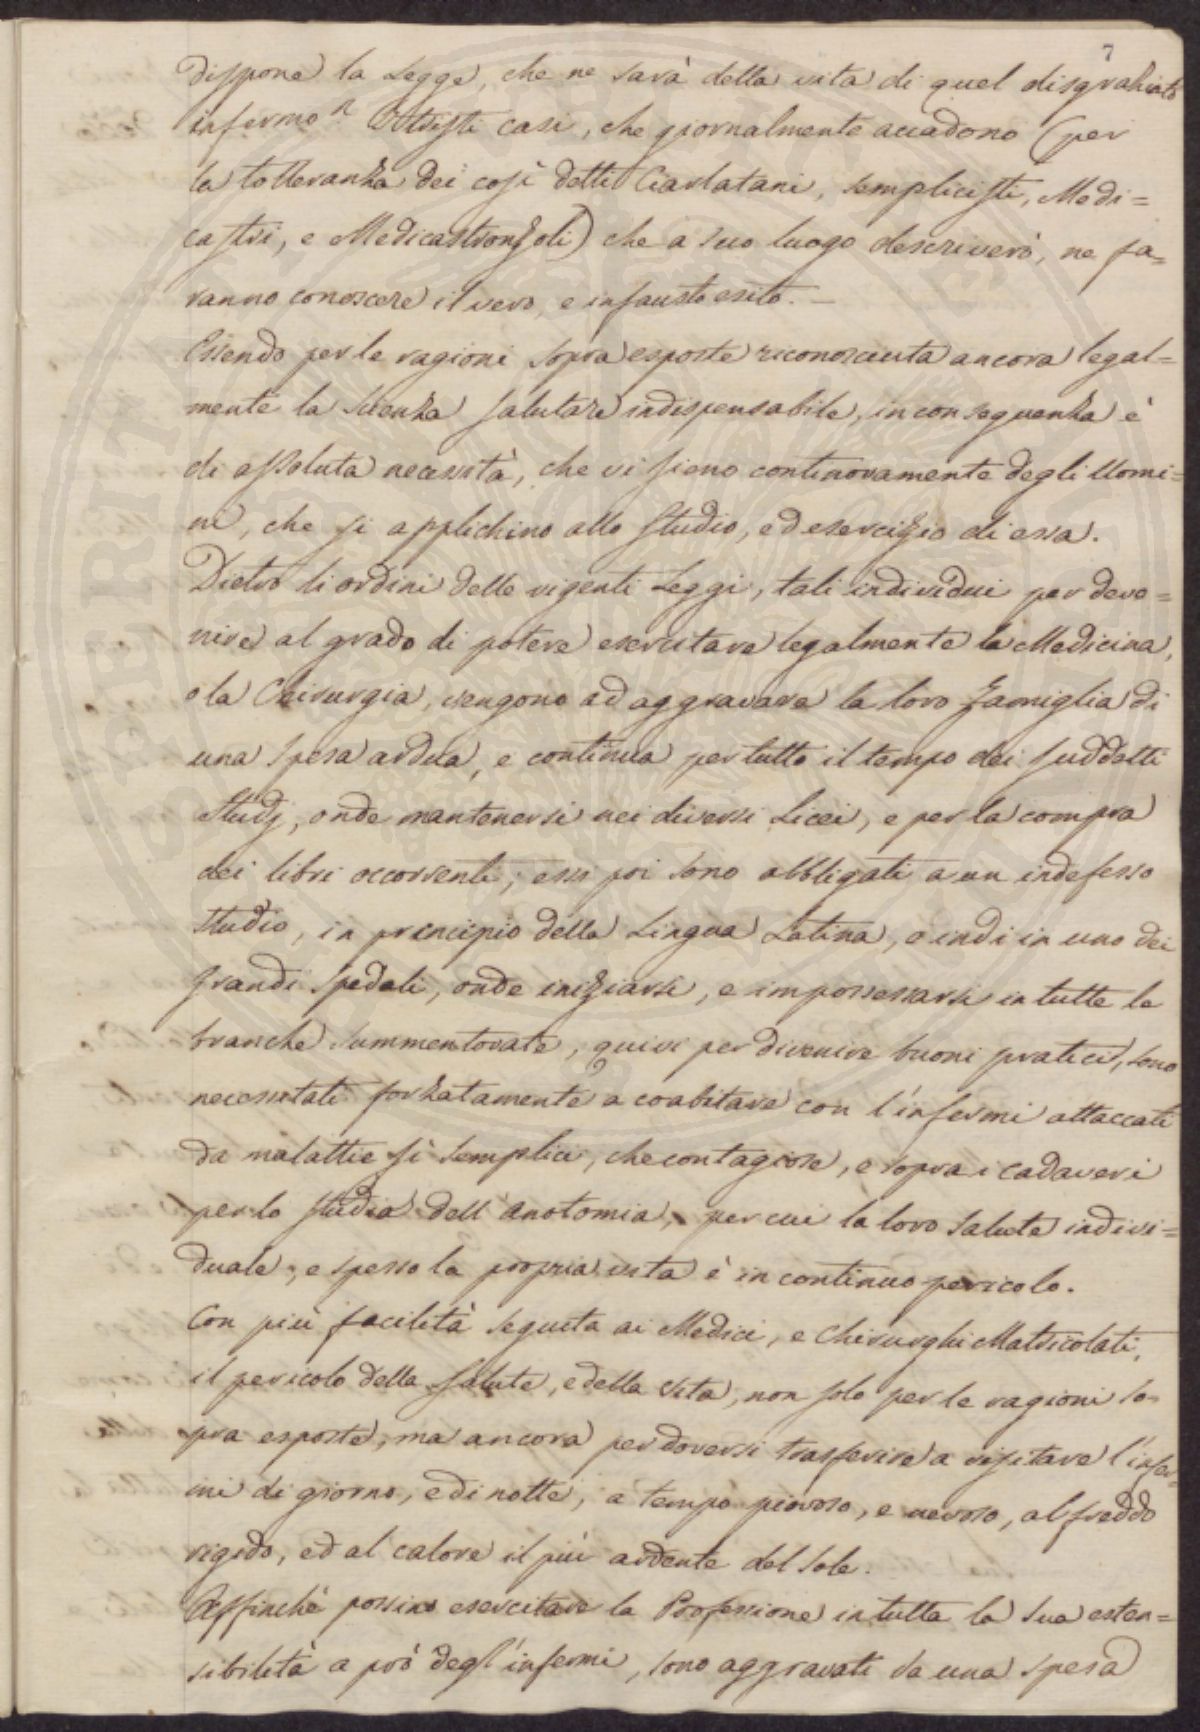 7
dispone la Legge, che ne sarà della vita di quel disgraziato
infermo? Molti casi, che giornalmente accadono (per
la tolleranza dei così detti Ciarlatani, semplicisti, Medi=
castri, e Medicastronzoli) che a suo luogo descriverò, ne fa=
ranno conoscere il vero, e infausto esito. —
Essendo per le ragioni sopra esposte riconosciuta ancora legal=
mente la Scienza salutare indispensabile, in conseguenza è
di assoluta necessità, che vi sieno continovamente degli Uomi=
ni, che si applichino allo studio, ed esercizio di essa.
Dietro li ordini delle vigenti Leggi, tali individui per deve=
nire al grado di potere esercitare legalmente la Medicina,
o la Chirurgia, vengono ad aggravare la loro famiglia di
una spesa ardua, e continua per tutto il tempo dei suddetti
Studj, onde mantenersi nei diversi Licei, e per la compra
dei libri occorrenti; essi poi sono obbligati a un indefesso
studio, in principio della Lingua Latina, e indi in uno dei
grandi Spedali, onde iniziarsi, e impossessarsi in tutte le
branche summentovate, quivi per divenire buoni pratici, sono
necessitati forzatamente a coabitare con l'infermi attaccati
da malattie sì semplici, che contagiose, e sopra i cadaveri
per lo studio dell'anotomia, per cui la loro salute indivi=
duale, e spesso la propria vita è in continuo pericolo.
Con più facilità seguita ai Medici, e Chirurghi Matricolati,
il pericolo della salute, e della vita, non solo per le ragioni so=
pra esposte, ma ancora per doversi trasferire a visitare l'infer=
mi di giorno, e di notte, a tempo piovoso, e nevoso, al freddo
rigido, ed al calore il più ardente del sole.
Affinchè possino esercitare la Professione in tutta la sua esten=
sibilità a prò degl'infermi, sono aggravati da una spesa